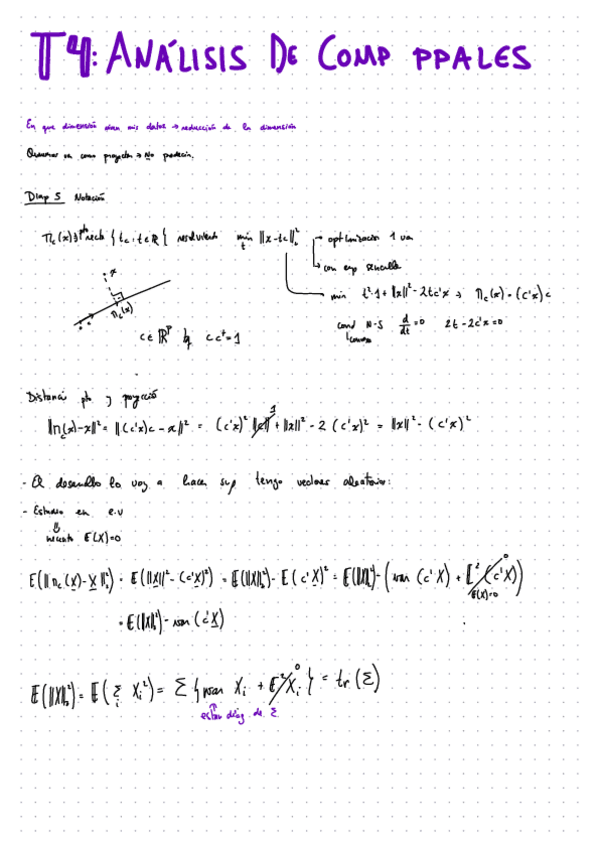 T4: ANÁLISIS DE COMP PPALES
En que dimensión viven mis datos → reducción de la dimensión
Queremos ver como proyectar → No predecir.
Diap 5 Notación
Π_c(x) pto recta {tc, t∈R} resolviendo min_t ||x-tc||²
→ optimización 1 var
→ con exp sencilla
min t²·1 + ||x||² - 2tc'x → Π_c(x) = (c'x)c
cond N-S d/dt = 0 2t - 2c'x = 0
x
Π_c(x)
c∈R^p tq cc^t = 1
Distancia pto y proyección
||Π_c(x)-x||² = ||(c'x)c - x||² = (c'x)² ||c||² 1 + ||x||² - 2(c'x)² = ||x||² - (c'x)²
- El desarrollo lo voy a hacer sup tengo vectores aleatorios:
- Estamos en e.v
⇓
necesito E(X)=0
E(||Π_c(X)-X||²) = E(||X||² - (c'X)²) = E(||X||²) - E(c'X)² = E(||X||²) - (var(c'X) + E²(c'X)) 0
E(X)=0
= E(||X||²) - var(c'X)
E(||X||²) = E(Σ_i X_i²) = Σ{var X_i + E²X_i} 0 = tr(Σ)
están diag. de Σ